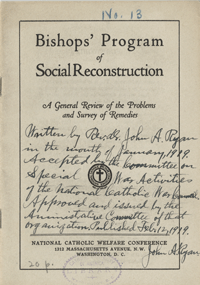 No. 13
Bishops' Program
of
Social Reconstruction
A General Review of the Problems
and Survey of Remedies
Written by Rev. Dr. John A. Ryan
in the month of January, 1919.
Accepted by the Committee on
Special War Activities
of the National Catholic War Council.
Approved and issued by the
Administrative Committee of that
organization. Published Feb. 12, 1919.
John A Ryan
NATIONAL CATHOLIC WELFARE CONFERENCE
1312 MASSACHUSETTS AVENUE, N.W.
WASHINGTON, D. C.